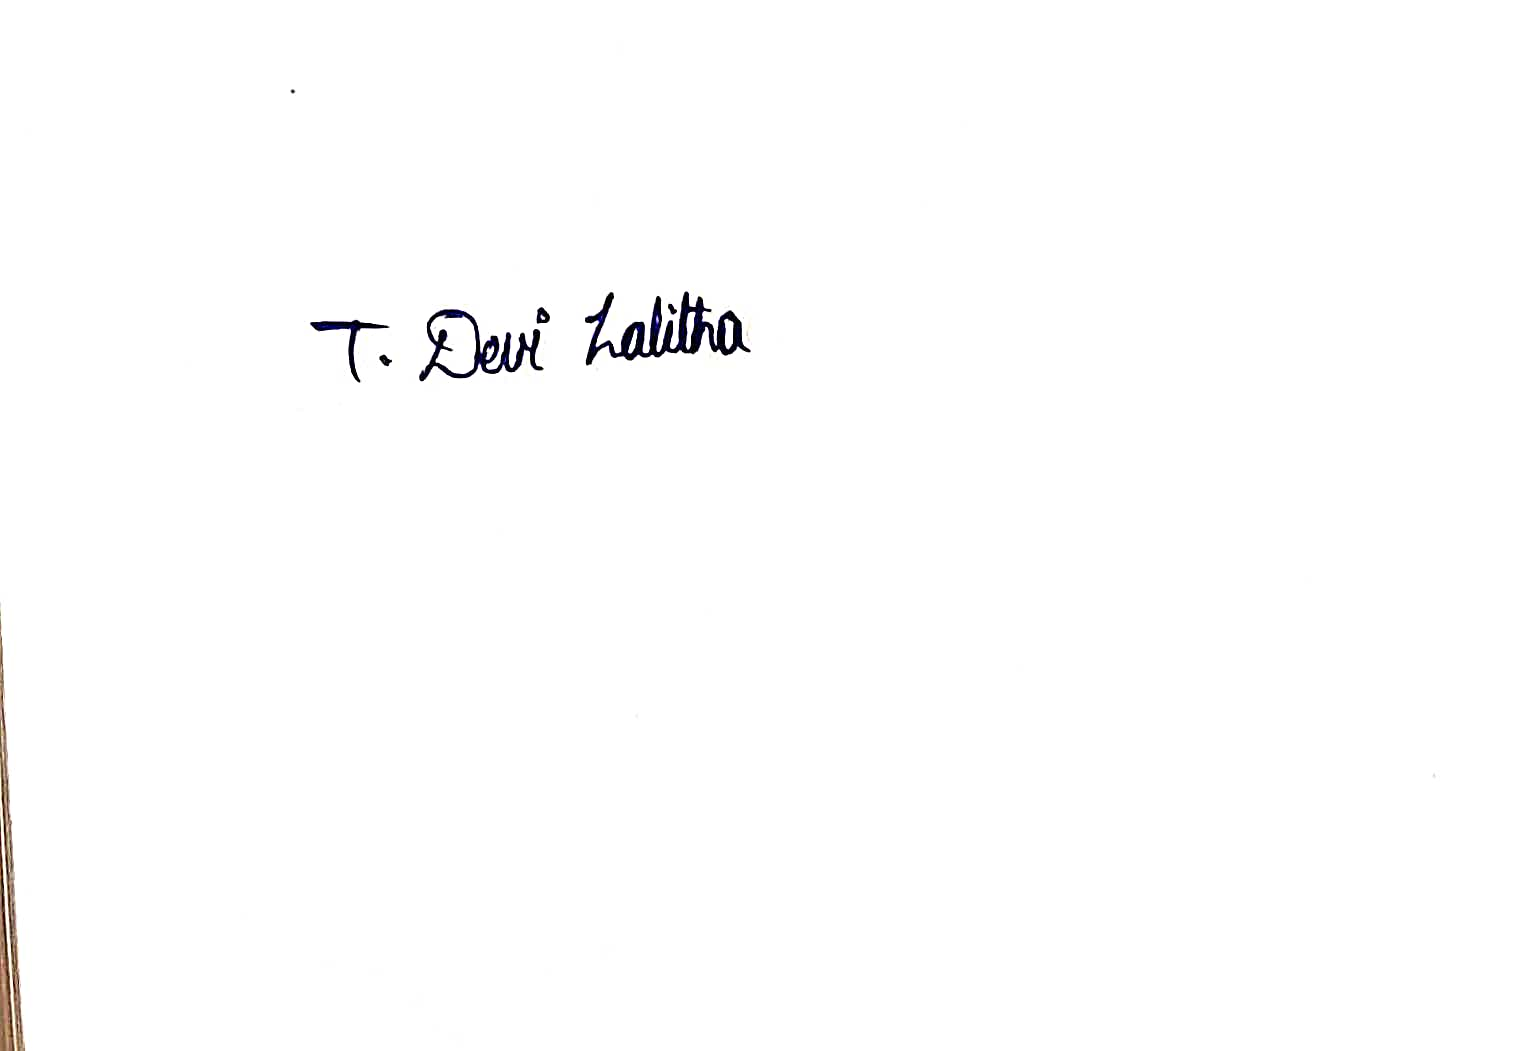 T. Devi Lalitha